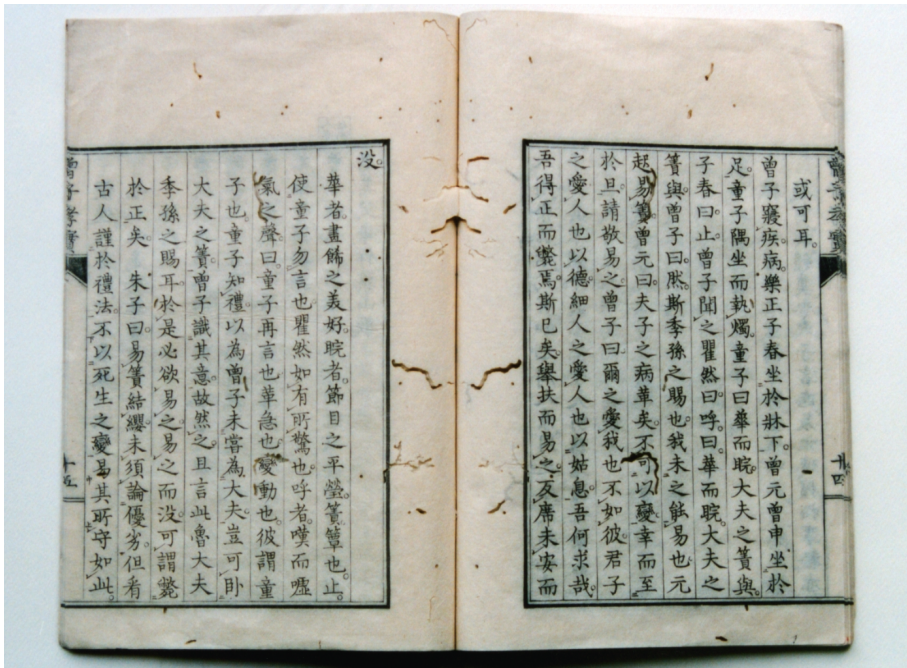 或可耳。
曾子寢疾病。樂正子春坐於牀下。曾元曾申坐於
足。童子隅坐而執燭。童子曰華而睆。大夫之簀與。
子春曰。止。曾子聞之瞿然曰。呼。曰。華而睆。大夫之
簀與。曾子曰。然。斯季孫之賜也。我未之能易也。元
起易簀。曾元曰。夫子之病革矣。不可以變。幸而至
於旦。請敬易之。曾子曰。爾之愛我也。不如彼。君子
之愛人也以德。細人之愛人也以姑息。吾何求哉。
吾得正而斃焉。斯已矣。舉扶而易之。反席未安而
没。
華者。畫飾之美好。睆者。節目之平瑩。簀簟也。止。
使童子勿言也。瞿然如有所驚也。呼者。嘆而噓
氣之聲。曰童子再言也。革急也。變動也。彼謂童
子也。童子知禮。以為曾子未嘗為大夫。豈可卧
大夫之簀。曾子識其意。故然之。且言此魯大夫
季孫之賜耳。於是必欲易之。易之而没。可謂斃
於正矣。朱子曰。易簀結纓。未須論優劣。但看
古人謹於禮法。不以死生之變。易其所守如此。
廿四
十五